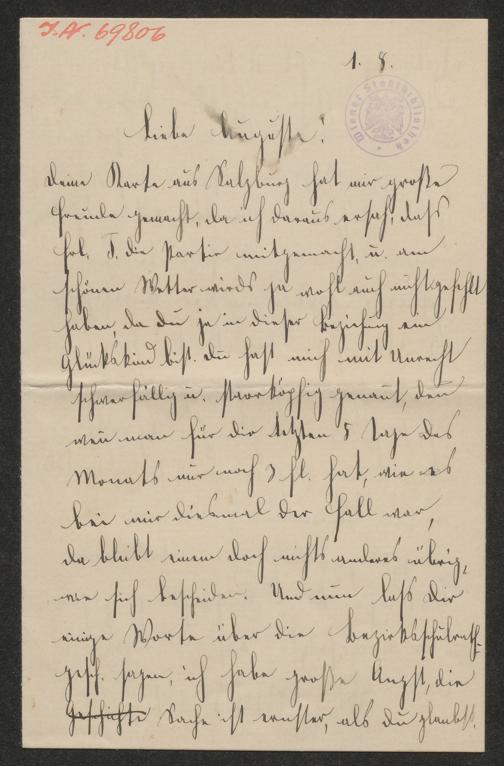 J.N. 69806
1. 8.
Wiener Stadtbibliothek
Liebe Auguste!
Deine Karte aus Salzburg hat mir große
Freude gemacht, da ich daraus ersah, dass
Frl. T. die Partie mitgemacht, u. am
schönen Wetter wirds ja wohl auch nicht gefehlt
haben, da du ja in dieser Beziehung ein
Glückskind bist. Du hast mich mit Unrecht
schwerfällig u. starrköpfig genannt, denn
wenn man für die letzten 5 Tage des
Monats nur noch 3 fl. hat, wie es
bei mir diesmal der Fall war,
da bleibt einem doch nichts anderes übrig,
wie sich bescheiden. Und nun lass Dir
einige Worte über die Bezirksschulrath-
gesch. sagen, ich habe große Angst, die
Geschichte Sache ist ernster, als du glaubst.